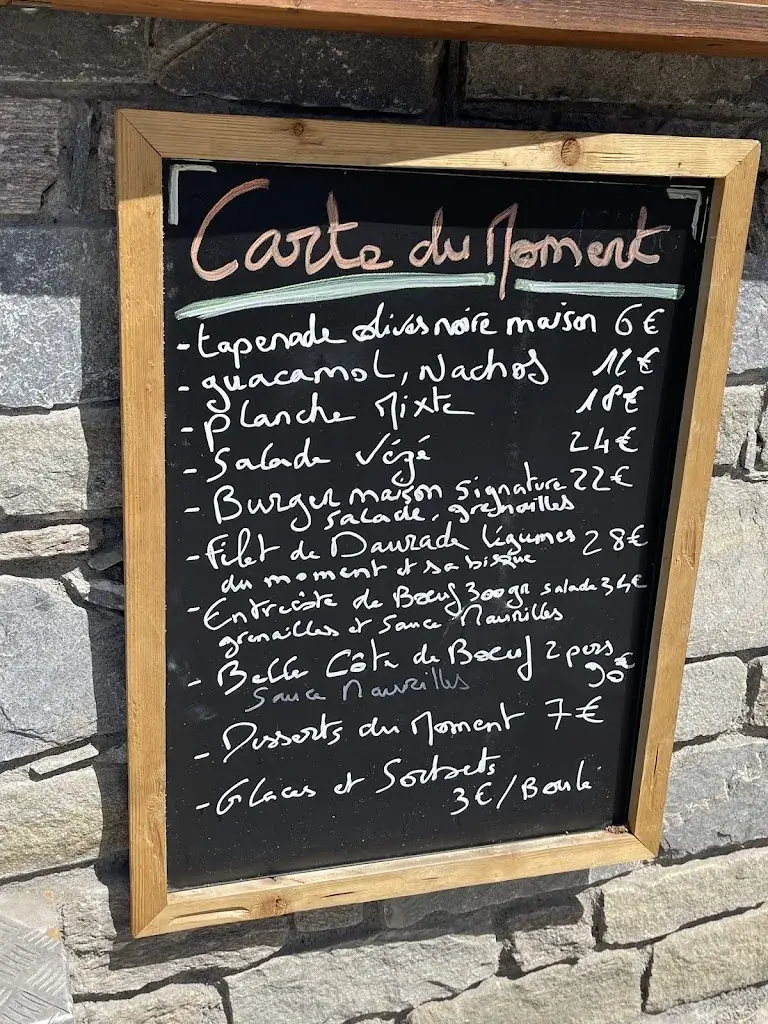 Carte du Moment
- tapenade olives noire maison 6€
- guacamol, Nachos 12€
- planche Mixte 18€
- Salade Végé 24€
- Burger maison signature 22€
salade, grenailles
- Filet de Daurade légumes 28€
du moment et sa bisque
- Entrecôte de Boeuf 300gr salade 34€
grenailles et Sauce Maurilles
- Belle Côte de Boeuf 2 pers
90€
Sauce Maureilles
- Desserts du Moment 7€
- Glaces et Sorbets
3€/Boule